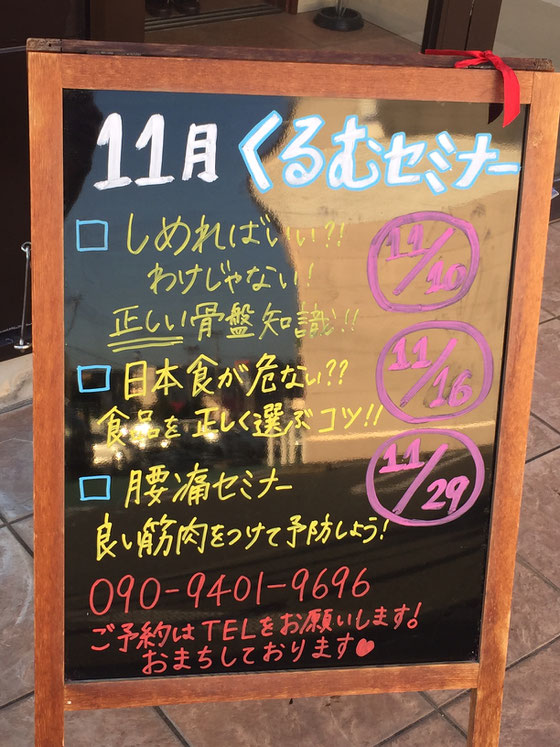 11月 くるむセミナー
□ しめればいい?!
わけじゃない!
正しい骨盤知識!!
11/10
□ 日本食が危ない??
食品を正しく選ぶコツ!!
11/16
□ 腰痛セミナー
良い筋肉をつけて予防しよう!
11/29
090-9401-9696
ご予約はTELをお願いします!
おまちしております♥